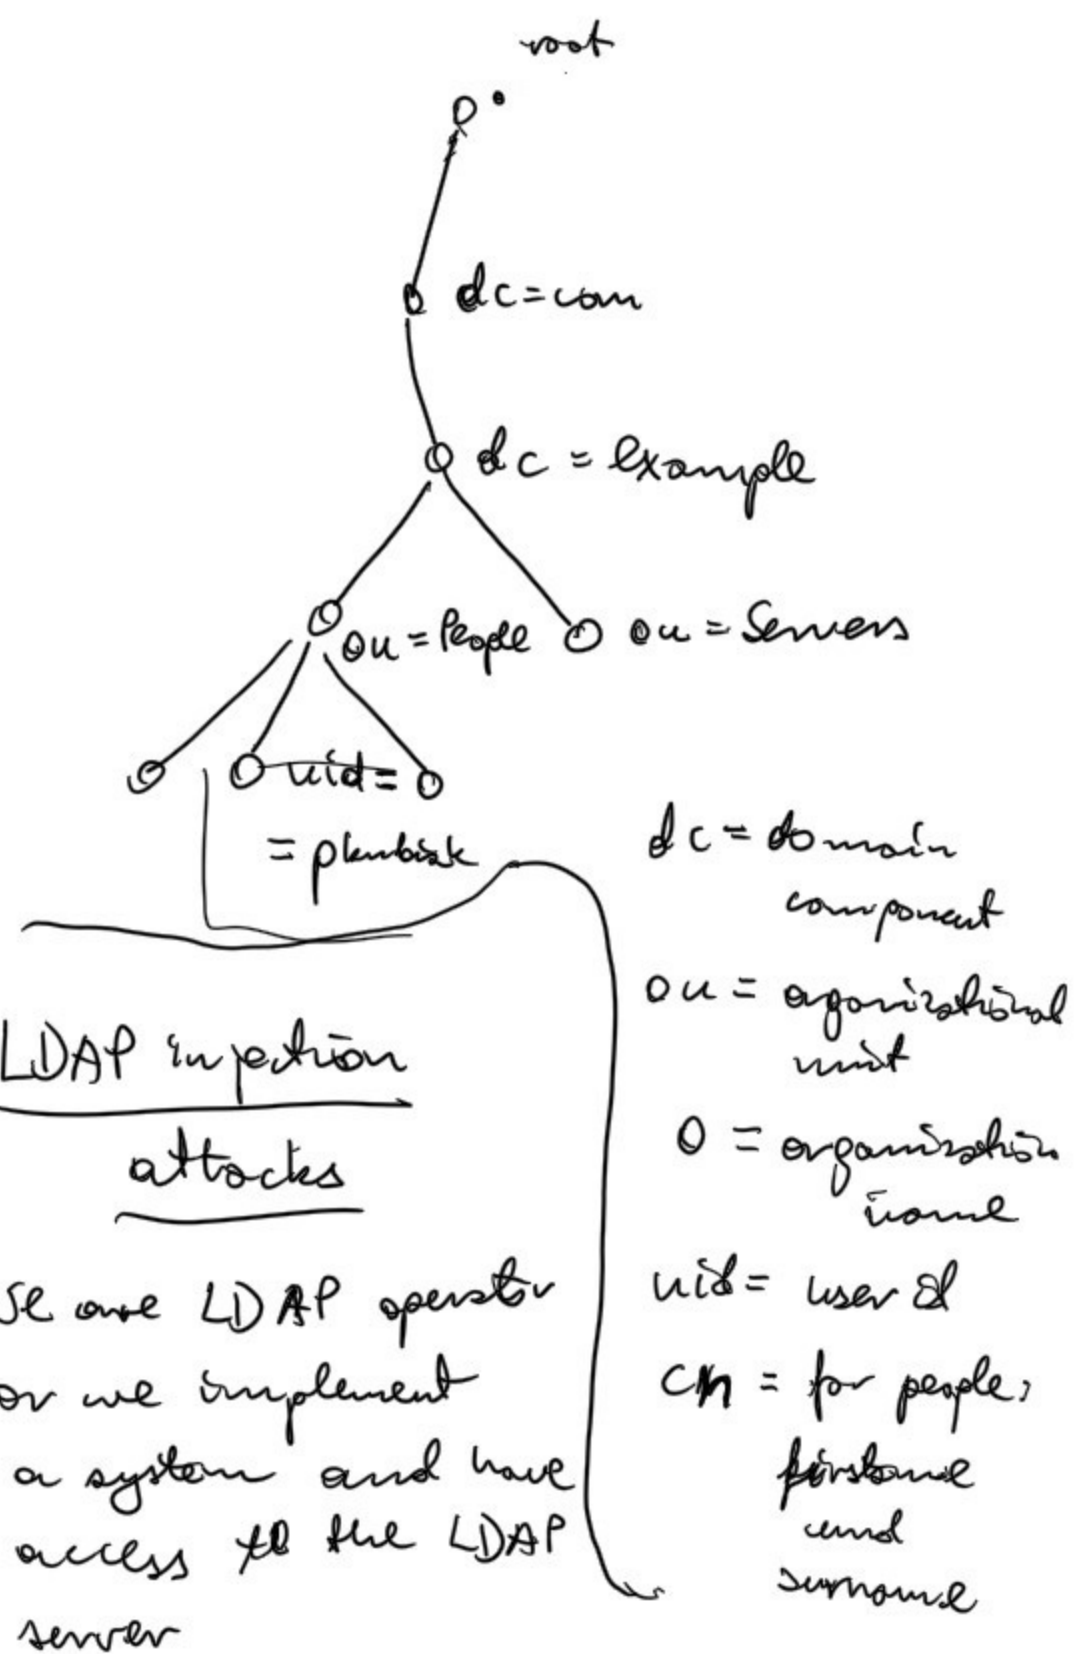 root
dc=com
dc = example
ou = People
ou = Servers
uid=
=
dc = domain
component
ou = organizational
unit
O = organization
name
uid = user id
cn = for people:
firstname
and
surname
LDAP injection
attacks
are LDAP operator
or we implement
a system and have
access to the LDAP
server